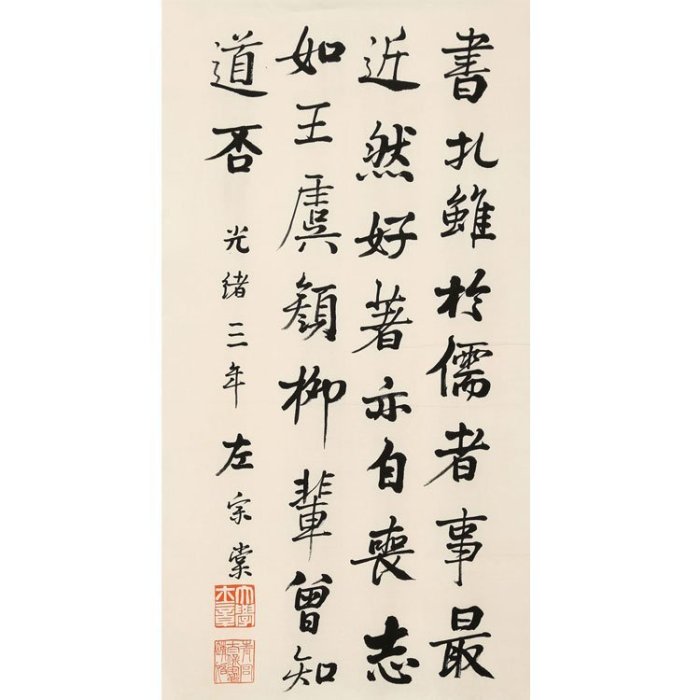 書扎雖於儒者事最
近然好著亦自喪志
如王虞顏柳輩曾知
道否
光緒三年
左宗棠